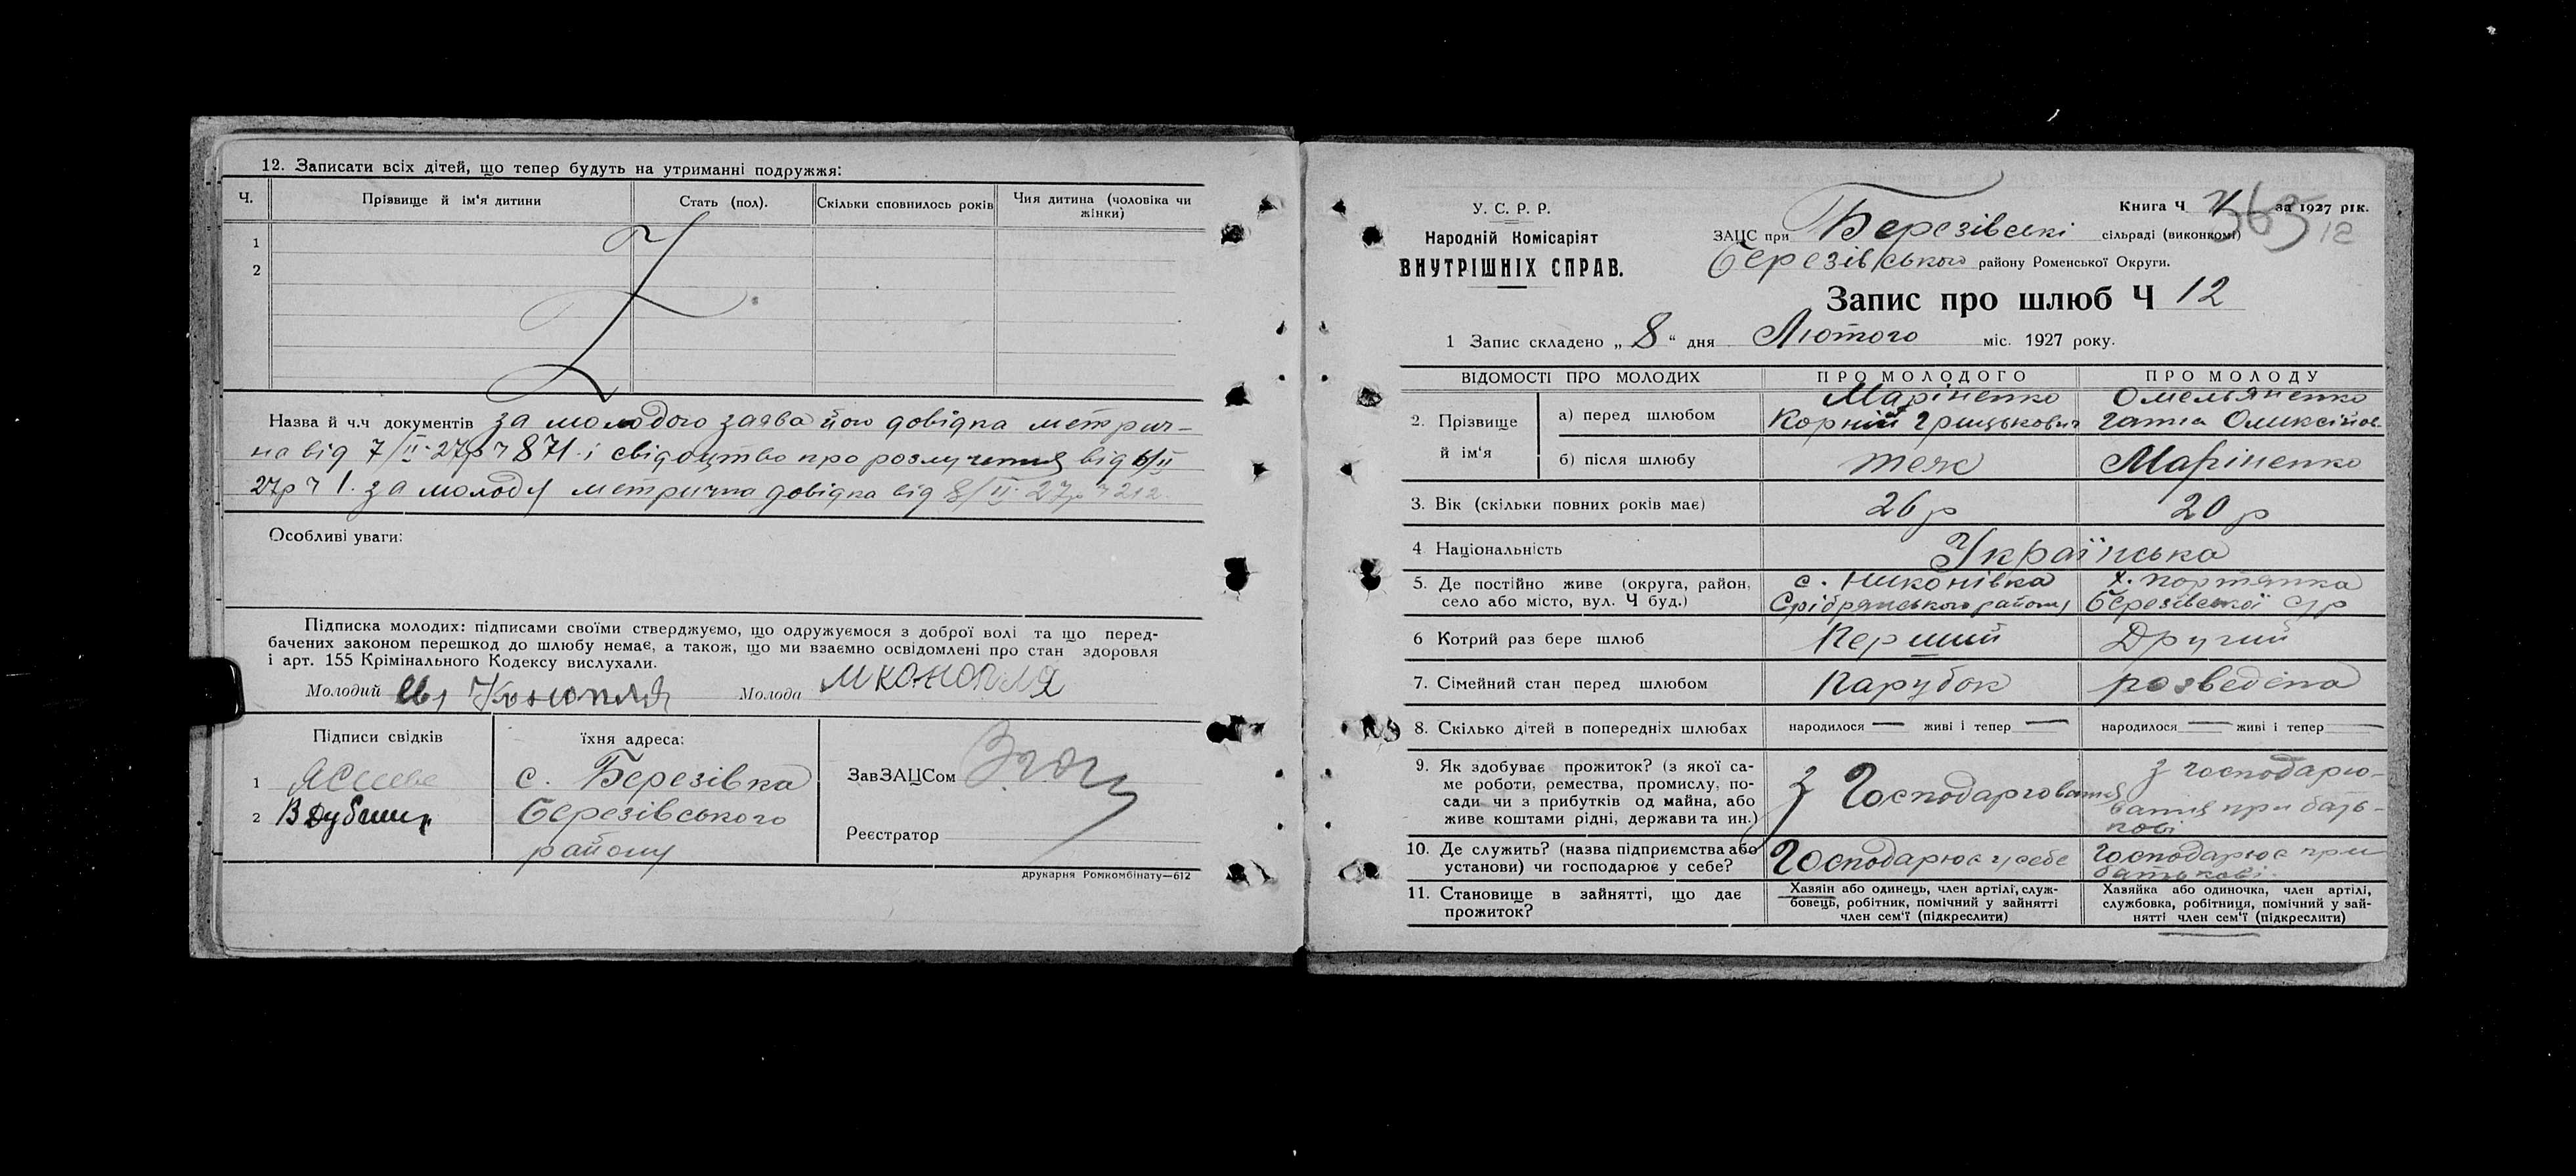 12. Записати всіх дітей, що тепер будуть на утриманні подружжя:
Ч. Прізвище й ім'я дитини Стать (пол). Скільки сповнилось років Чия дитина (чоловіка чи жінки)
1
2
Назва й ч.ч документів за молодого заява його довідка метрич-
на від 7/II-27р ч 871 і свідоцтво про розлучення від 6/II
27р ч 1. за молоду метрична довідка від 8/II-27р ч 212
Особливі уваги:
Підписка молодих: підписами своїми стверджуємо, що одружуємося з доброї волі та що перед-
бачених законом перешкод до шлюбу немає, а також, що ми взаємно освідомлені про стан здоровля
і арт. 155 Крімінального Кодексу вислухали.
Молодий Конопля Молода М Конопля
Підписи свідків їхня адреса:
1 с. Березівка ЗавЗАЦСом
2 Березівського
району Реєстратор
друкарня Ромкомбінату—612
У. С. Р. Р.
Народній Комісаріят
ВНУТРІШНІХ СПРАВ.
Книга Ч за 1927 рік.
363 12
ЗАЦС при Березівські сільраді (виконкомі)
Березівського району Роменської Округи.
Запис про шлюб Ч 12
1 Запис складено „8" дня Лютого міс. 1927 року.
ВІДОМОСТІ ПРО МОЛОДИХ ПРО МОЛОДОГО ПРО МОЛОДУ
2. Прізвище й ім'я
а) перед шлюбом Маріненко Корній Грицькович Омельяненко Ганна Олексійов.
б) після шлюбу теж Маріненко
3. Вік (скільки повних років має) 26 р 20 р
4 Національність Українська
5. Де постійно живе (округа, район, с. Никонівка х. Портянка
село або місто, вул. Ч буд.) Срібрянського району Березівської с/р
6 Котрий раз бере шлюб Перший Другий
7. Сімейний стан перед шлюбом Парубок розведена
8. Скілько дітей в попередніх шлюбах народилося — живі і тепер — народилося — живі і тепер —
9. Як здобуває прожиток? (з якої са-
ме роботи, ремества, промислу, по-
сади чи з прибутків од майна, або
живе коштами рідні, держави та ин.)
З Господарговання
з господарю-
вання при бать-
кові
10. Де служить? (назва підприємства або Господарює у себе Господарює при
установи) чи господарює у себе? батькові
11. Становище в зайнятті, що дає
прожиток?
Хазяін або одинець, член артілі, служ-
бовець, робітник, помічний у зайнятті
член сем'ї (підкреслити)
Хазяйка або одиночка, член артілі,
службовка, робітниця, помічний у зай-
нятті член сем'ї (підкреслити)